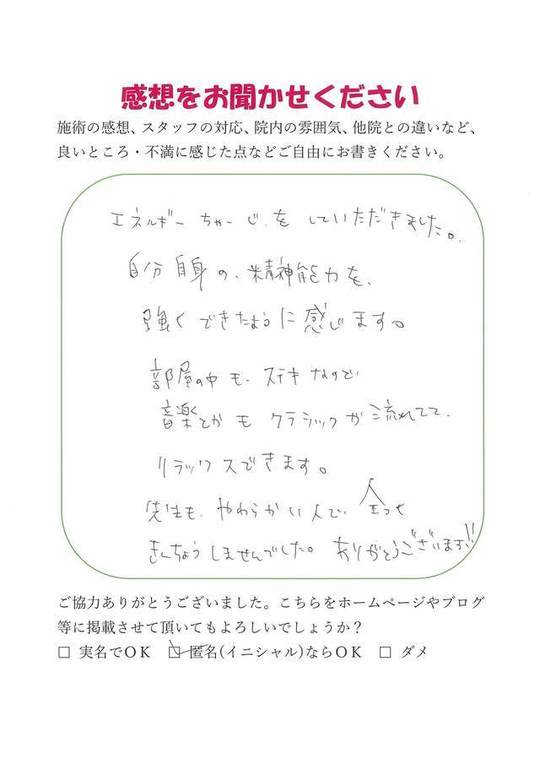 感想をお聞かせください
施術の感想、スタッフの対応、院内の雰囲気、他院との違いなど、
良いところ・不満に感じた点などご自由にお書きください。
エネルギー ちゃーじ、を していただきました。
自分自身の、精神能力を、
強くできたように感じます。
部屋の中も、ステキなので
音楽とかもクラシックが流れてて、
リラックスできます。
先生も、やわらかい人で、会って
きんちょうしませんでした。ありがとうございます!!
ご協力ありがとうございました。こちらをホームページやブログ
等に掲載させて頂いてもよろしいでしょうか?
□ 実名でOK ☑ 匿名(イニシャル)ならOK □ ダメ